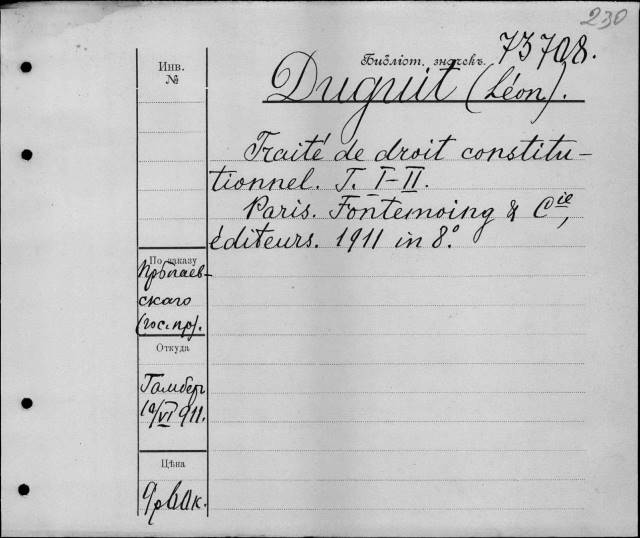 230
Библіот. значекъ. 73708.
Инв.
№
Duguit (Léon).
Traité de droit constitu-
tionnel. T. I-II.
Paris. Fontemoing & Cie,
éditeurs. 1911 in 8°.
По заказу
скаго
(гос. пр).
Откуда
Гамберъ
10/VI 911.
Цѣна